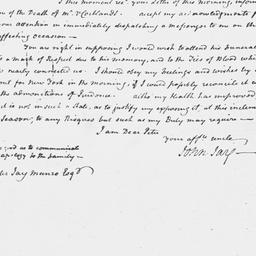 this moment recd. your letter of this morning, inform
ion of the Death of Mr.
accept my acknowledgments f
your attention in immediately dispatching a messenger to me on the
affecting occasion—
You are right in supposing I would wish to attend his funeral
a mark of Respect due to his memory, and to the Ties of Blood whi
nearly connected us. I should obey my feelings and wishes by
out for New York in the morning, if I could properly reconcile it
the admonitions of Prudence. altho my Health has improved
it is not in such a state, as to justify my opposing it, at this inclem
Season, to any Risques but such as my Duty may require—
I am Dear Peter
your affte. uncle
John Jay
good as to communicate
apology to the family—
Jay Munro Esqr.